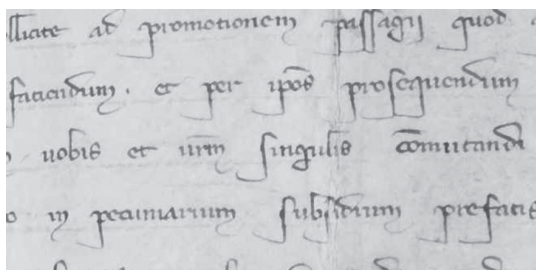 llicite ad promotionem passagij quod
faciendum. et per ip̄os prosequendum
uobis et ur̄m singulis com̄utandi
in pecuniarium subsidium prefatis